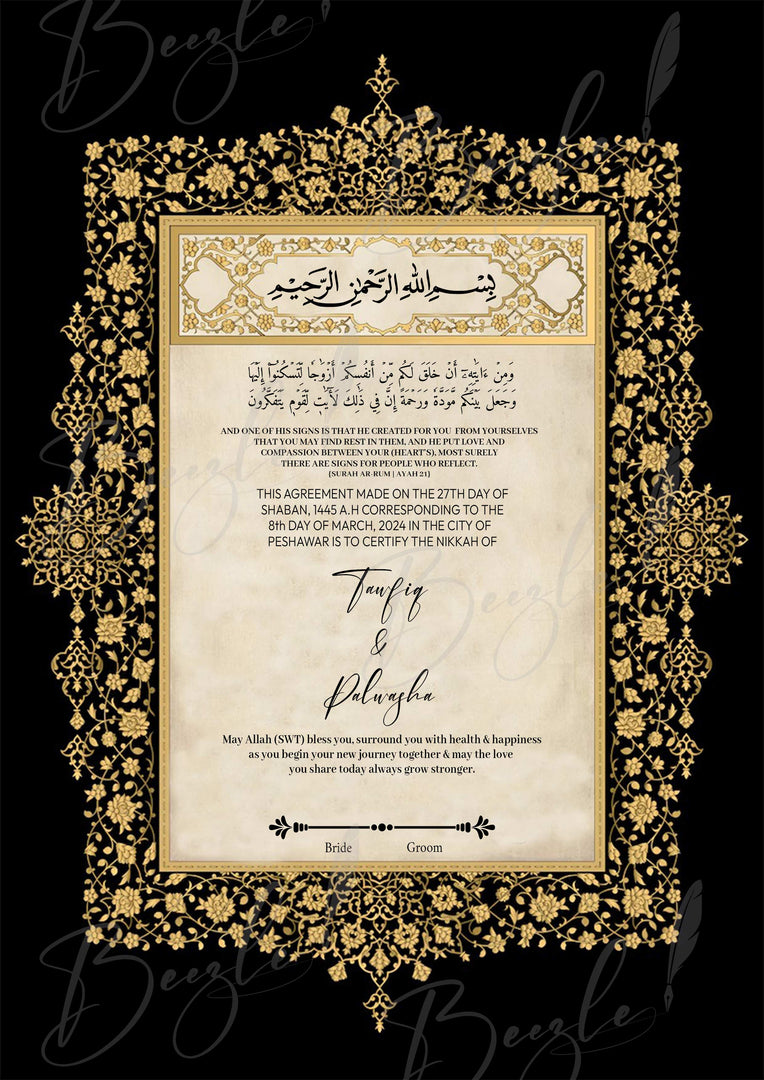 Beezle
Beezle
بِسْمِ اللهِ الرَّحْمٰنِ الرَّحِيْمِ
وَمِنْ ءَايَٰتِهِۦٓ أَنْ خَلَقَ لَكُم مِّنْ أَنفُسِكُمْ أَزْوَٰجًا لِّتَسْكُنُوٓا۟ إِلَيْهَا
وَجَعَلَ بَيْنَكُم مَّوَدَّةً وَرَحْمَةً إِنَّ فِي ذَٰلِكَ لَءَايَٰتٍ لِّقَوْمٍ يَتَفَكَّرُونَ
AND ONE OF HIS SIGNS IS THAT HE CREATED FOR YOU FROM YOURSELVES
THAT YOU MAY FIND REST IN THEM, AND HE PUT LOVE AND
COMPASSION BETWEEN YOUR (HEART'S), MOST SURELY
THERE ARE SIGNS FOR PEOPLE WHO REFLECT.
{SURAH AR-RUM | AYAH 21}
THIS AGREEMENT MADE ON THE 27TH DAY OF
SHABAN, 1445 A.H CORRESPONDING TO THE
8th DAY OF MARCH, 2024 IN THE CITY OF
PESHAWAR IS TO CERTIFY THE NIKKAH OF
Tawfiq
&
Palwasha
Beezle
May Allah (SWT) bless you, surround you with health & happiness
as you begin your new journey together & may the love
you share today always grow stronger.
Bride Groom
Beezle
Beezle